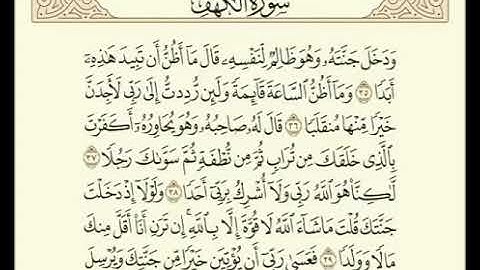 سورة الكهف
وَدَخَلَ جَنَّتَهُۥ وَهُوَ ظَالِمٌ لِّنَفْسِهِۦ قَالَ مَآ أَظُنُّ أَن تَبِيدَ هَٰذِهِۦٓ
أَبَدًا ٣٥ وَمَآ أَظُنُّ ٱلسَّاعَةَ قَآئِمَةً وَلَئِن رُّدِدتُّ إِلَىٰ رَبِّى لَأَجِدَنَّ
خَيْرًا مِّنْهَا مُنقَلَبًا ٣٦ قَالَ لَهُۥ صَاحِبُهُۥ وَهُوَ يُحَاوِرُهُۥٓ أَكَفَرْتَ
بِٱلَّذِى خَلَقَكَ مِن تُرَابٍ ثُمَّ مِن نُّطْفَةٍ ثُمَّ سَوَّىٰكَ رَجُلًا ٣٧
لَّٰكِنَّا۠ هُوَ ٱللَّهُ رَبِّى وَلَآ أُشْرِكُ بِرَبِّىٓ أَحَدًا ٣٨ وَلَوْلَآ إِذْ دَخَلْتَ
جَنَّتَكَ قُلْتَ مَا شَآءَ ٱللَّهُ لَا قُوَّةَ إِلَّا بِٱللَّهِ ۚ إِن تَرَنِ أَنَا۠ أَقَلَّ مِنكَ
مَالًا وَوَلَدًا ٣٩ فَعَسَىٰ رَبِّىٓ أَن يُؤْتِيَنِ خَيْرًا مِّن جَنَّتِكَ وَيُرْسِلَ